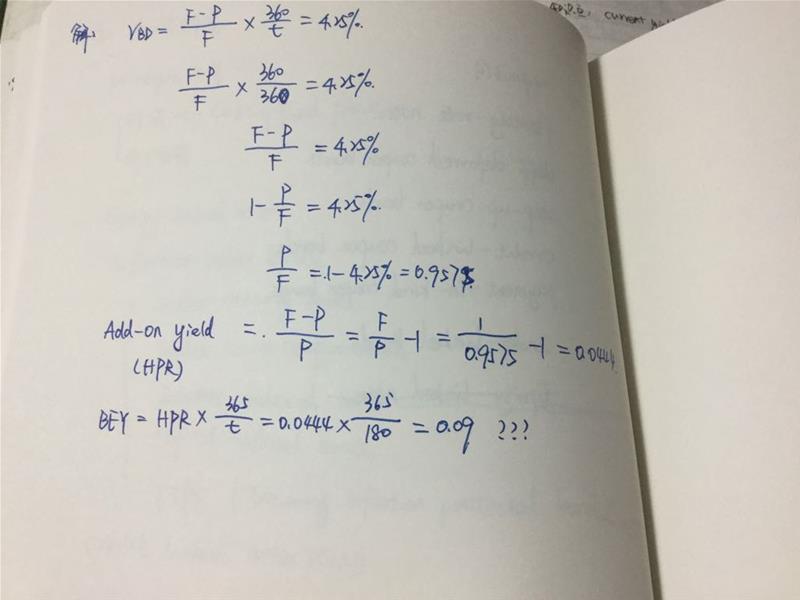 解: YBD = F-P/F × 360/t = 4.25%.
F-P/F × 360/360 = 4.25%.
F-P/F = 4.25%
1 - P/F = 4.25%.
P/F = 1 - 4.25% = 0.9575.
Add-on yield = F-P/P = F/P - 1 = 1/0.9575 - 1 = 0.0444.
(HPR)
BEY = HPR × 365/t = 0.0444 × 365/180 = 0.09 ???
current